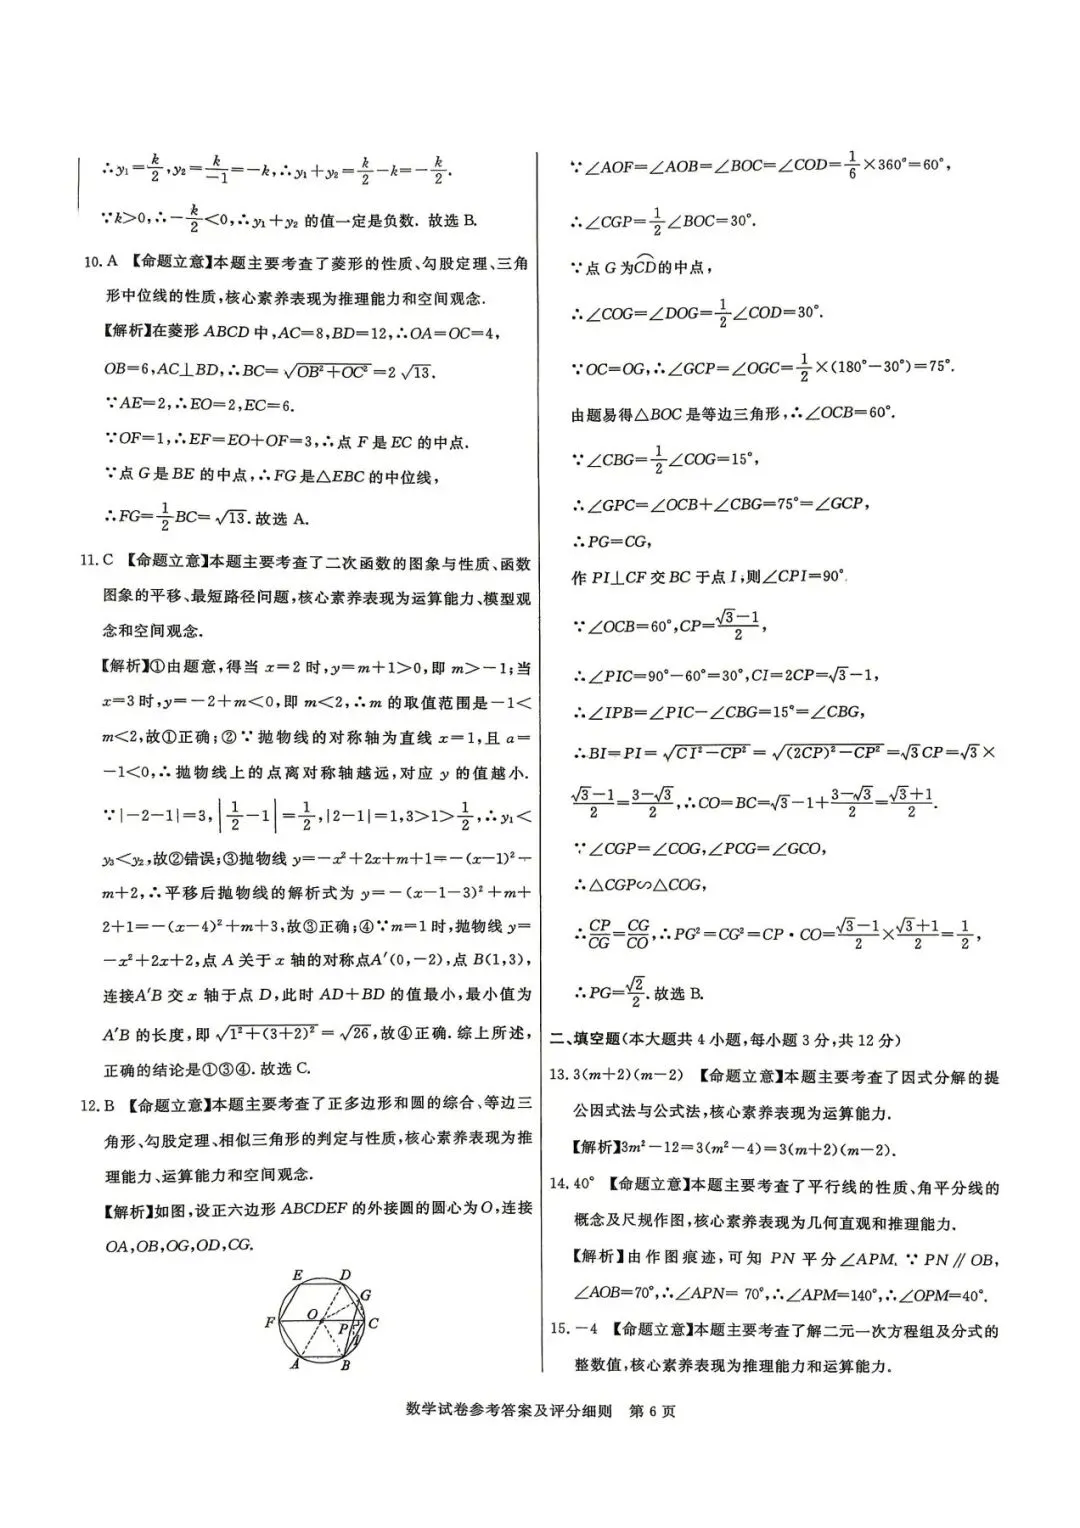 ∴y₁=k/2,y₂=k/(-1)=-k,∴y₁+y₂=k/2-k=-k/2.
∵k>0,∴-k/2<0,∴y₁+y₂ 的值一定是负数. 故选 B.
10. A 【命题立意】本题主要考查了菱形的性质、勾股定理、三角
形中位线的性质,核心素养表现为推理能力和空间观念.
【解析】在菱形 ABCD 中,AC=8,BD=12,∴OA=OC=4,
OB=6,AC⊥BD,∴BC=√(OB²+OC²)=2√13.
∵AE=2,∴EO=2,EC=6.
∵OF=1,∴EF=EO+OF=3,∴点 F 是 EC 的中点.
∵点 G 是 BE 的中点,∴FG 是△EBC 的中位线,
∴FG=1/2BC=√13.故选 A.
11. C 【命题立意】本题主要考查了二次函数的图象与性质、函数
图象的平移、最短路径问题,核心素养表现为运算能力、模型观
念和空间观念.
【解析】①由题意,得当 x=2 时,y=m+1>0,即 m>-1;当
x=3 时,y=-2+m<0,即 m<2,∴m 的取值范围是-1<
m<2,故①正确;②∵抛物线的对称轴为直线 x=1,且 a=
-1<0,∴抛物线上的点离对称轴越远,对应 y 的值越小.
∵|-2-1|=3,|1/2-1|=1/2,|2-1|=1,3>1>1/2,∴y₁<
y₃<y₂,故②错误;③抛物线 y=-x²+2x+m+1=-(x-1)²+
m+2,∴平移后抛物线的解析式为 y=-(x-1-3)²+m+
2+1=-(x-4)²+m+3,故③正确;④∵m=1 时,抛物线 y=
-x²+2x+2,点 A 关于 x 轴的对称点A′(0,-2),点 B(1,3),
连接A′B 交 x 轴于点 D,此时 AD+BD 的值最小,最小值为
A′B 的长度,即√(1²+(3+2)²)=√26,故④正确. 综上所述,
正确的结论是①③④. 故选 C.
12. B 【命题立意】本题主要考查了正多边形和圆的综合、等边三
角形、勾股定理、相似三角形的判定与性质,核心素养表现为推
理能力、运算能力和空间观念.
【解析】如图,设正六边形 ABCDEF 的外接圆的圆心为 O,连接
OA,OB,OG,OD,CG.
E D
G
F O P C
I
A B
∵∠AOF=∠AOB=∠BOC=∠COD=1/6×360°=60°,
∴∠CGP=1/2∠BOC=30°.
∵点 G 为C͡D的中点,
∴∠COG=∠DOG=1/2∠COD=30°.
∵OC=OG,∴∠GCP=∠OGC=1/2×(180°-30°)=75°.
由题易得△BOC 是等边三角形,∴∠OCB=60°.
∵∠CBG=1/2∠COG=15°,
∴∠GPC=∠OCB+∠CBG=75°=∠GCP,
∴PG=CG,
作 PI⊥CF 交 BC 于点 I,则∠CPI=90°.
∵∠OCB=60°,CP=(√3-1)/2,
∴∠PIC=90°-60°=30°,CI=2CP=√3-1,
∴∠IPB=∠PIC-∠CBG=15°=∠CBG,
∴BI=PI=√(CI²-CP²)=√((2CP)²-CP²)=√3CP=√3×
(√3-1)/2=(3-√3)/2,∴CO=BC=√3-1+(3-√3)/2=(√3+1)/2.
∵∠CGP=∠COG,∠PCG=∠GCO,
∴△CGP∽△COG,
∴CP/CG=CG/CO,∴PG²=CG²=CP·CO=(√3-1)/2×(√3+1)/2=1/2,
∴PG=√2/2.故选 B.
二、填空题(本大题共 4 小题,每小题 3 分,共 12 分)
13. 3(m+2)(m-2) 【命题立意】本题主要考查了因式分解的提
公因式法与公式法,核心素养表现为运算能力.
【解析】3m²-12=3(m²-4)=3(m+2)(m-2).
14. 40° 【命题立意】本题主要考查了平行线的性质、角平分线的
概念及尺规作图,核心素养表现为几何直观和推理能力.
【解析】由作图痕迹,可知 PN 平分∠APM. ∵PN∥OB,
∠AOB=70°,∴∠APN=70°,∴∠APM=140°,∴∠OPM=40°.
15. -4 【命题立意】本题主要考查了解二元一次方程组及分式的
整数值,核心素养表现为推理能力和运算能力.
数学试卷参考答案及评分细则 第 6 页